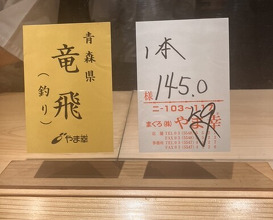 青森県
竜飛
(釣り)
やま幸
1本
145.0
様
ニ-103-
まぐろ
やま幸